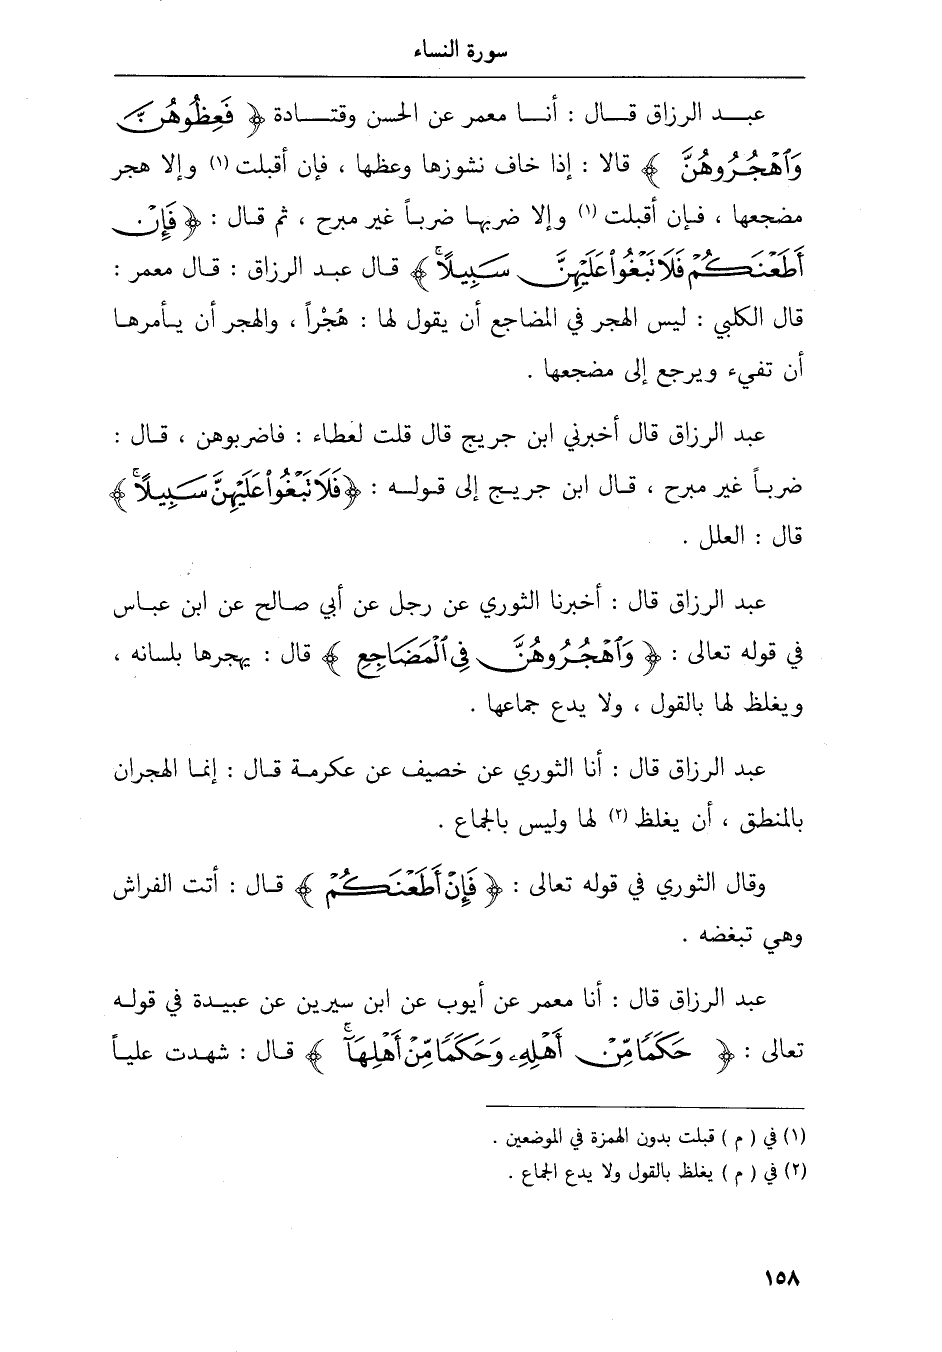 سورة النساء
عبد الرزاق قال : أنا معمر عن الحسن وقتادة ﴿ فَعِظُوهُنَّ
وَٱهْجُرُوهُنَّ ﴾ قالا : إذا خاف نشوزها وعظها ، فإن أقبلت (١) وإلا هجر
مضجعها ، فإن أقبلت (١) وإلا ضربها ضرباً غير مبرح ، ثم قال : ﴿ فَإِنْ
أَطَعْنَكُمْ فَلَا تَبْغُوا۟ عَلَيْهِنَّ سَبِيلًا ۗ﴾ قال عبد الرزاق : قال معمر :
قال الكلبي : ليس الهجر في المضاجع أن يقول لها : هُجْراً ، والهجر أن يأمرها
أن تفيء ويرجع إلى مضجعها .
عبد الرزاق قال أخبرني ابن جريج قال قلت لعطاء : فاضربوهن ، قال :
ضرباً غير مبرح ، قال ابن جريج إلى قوله : ﴿فَلَا تَبْغُوا۟ عَلَيْهِنَّ سَبِيلًا ۗ﴾
قال : العلل .
عبد الرزاق قال : أخبرنا الثوري عن رجل عن أبي صالح عن ابن عباس
في قوله تعالى : ﴿ وَٱهْجُرُوهُنَّ فِى ٱلْمَضَاجِعِ ﴾ قال : يهجرها بلسانه ،
ويغلظ لها بالقول ، ولا يدع جماعها .
عبد الرزاق قال : أنا الثوري عن خصيف عن عكرمة قال : إنما الهجران
بالمنطق ، أن يغلظ (٢) لها وليس بالجماع .
وقال الثوري في قوله تعالى : ﴿ فَإِنْ أَطَعْنَكُمْ ﴾ قال : أتت الفراش
وهي تبغضه .
عبد الرزاق قال : أنا معمر عن أيوب عن ابن سيرين عن عبيدة في قوله
تعالى : ﴿ حَكَمًا مِّنْ أَهْلِهِۦ وَحَكَمًا مِّنْ أَهْلِهَآ ۚ﴾ قال : شهدت علياً
(١) في ( م ) قبلت بدون الهمزة في الموضعين .
(٢) في ( م ) يغلظ بالقول ولا يدع الجماع .
١٥٨